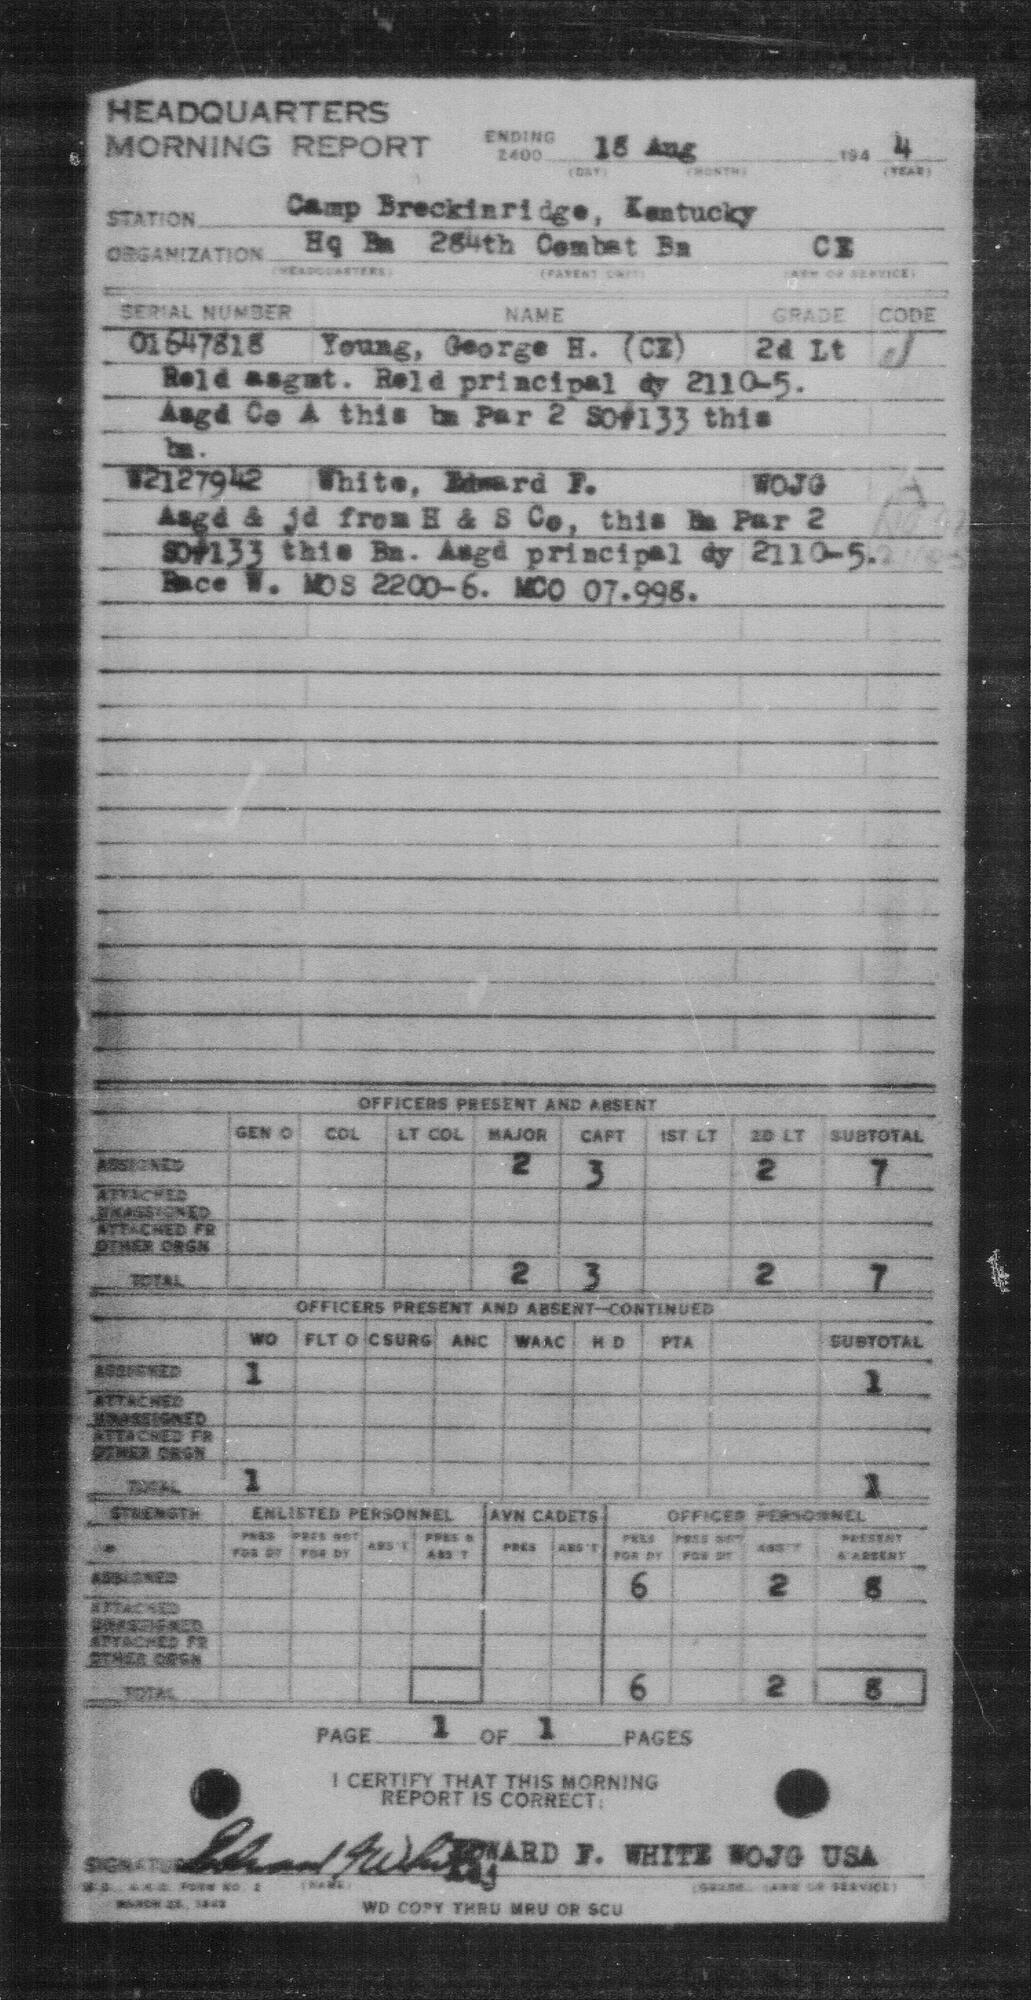 HEADQUARTERS
MORNING REPORT ENDING 2400 18 Aug 194 4
(DAY) (MONTH) (YEAR)
STATION Camp Breckinridge, Kentucky
ORGANIZATION Hq Bn 284th Combat Bn CE
(HEADQUARTERS) (PARENT UNIT) (ARM OR SERVICE)
SERIAL NUMBER NAME GRADE CODE
01647818 Young, George H. (CE) 2d Lt J
Reld asgmt. Reld principal dy 2110-5.
Asgd Co A this bn Par 2 SO#133 this
bn.
W2127942 White, Edward F. WOJG A
Asgd & jd from H & S Co, this Bn Par 2
SO#133 this Bn. Asgd principal dy 2110-5.
Race W. MOS 2200-6. MCO 07.998.
OFFICERS PRESENT AND ABSENT
GEN O COL LT COL MAJOR CAPT 1ST LT 2D LT SUBTOTAL
ASSIGNED 2 3 2 7
ATTACHED
UNASSIGNED
ATTACHED FR
OTHER ORGN
TOTAL 2 3 2 7
OFFICERS PRESENT AND ABSENT—CONTINUED
WO FLT O CSURG ANC WAAC H D PTA SUBTOTAL
ASSIGNED 1 1
ATTACHED
UNASSIGNED
ATTACHED FR
OTHER ORGN
TOTAL 1 1
STRENGTH ENLISTED PERSONNEL AVN CADETS OFFICER PERSONNEL
PRES FOR DY PRES NOT FOR DY ABS'T PRES & ABS'T PRES ABS'T PRES FOR DY PRES NOT FOR DY ABS'T PRESENT & ABSENT
ASSIGNED 6 2 8
ATTACHED
UNASSIGNED
ATTACHED FR
OTHER ORGN
TOTAL 6 2 8
PAGE 1 OF 1 PAGES
I CERTIFY THAT THIS MORNING
REPORT IS CORRECT:
SIGNATURE Edward F White EDWARD F. WHITE WOJG USA
(NAME) (GRADE) (ARM OR SERVICE)
W.D., A.G.O. FORM NO. 2
MARCH 25, 1943
WD COPY THRU MRU OR SCU